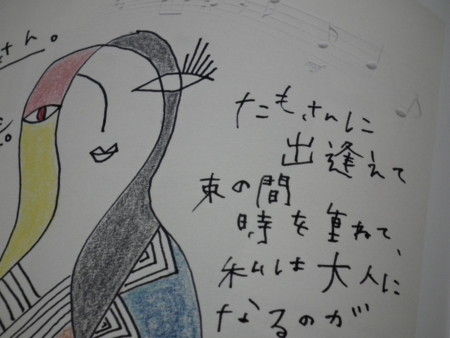 さん。
。
たもさんに
出逢えて
束の間
時を重ねて、
私は大人に
なるのが